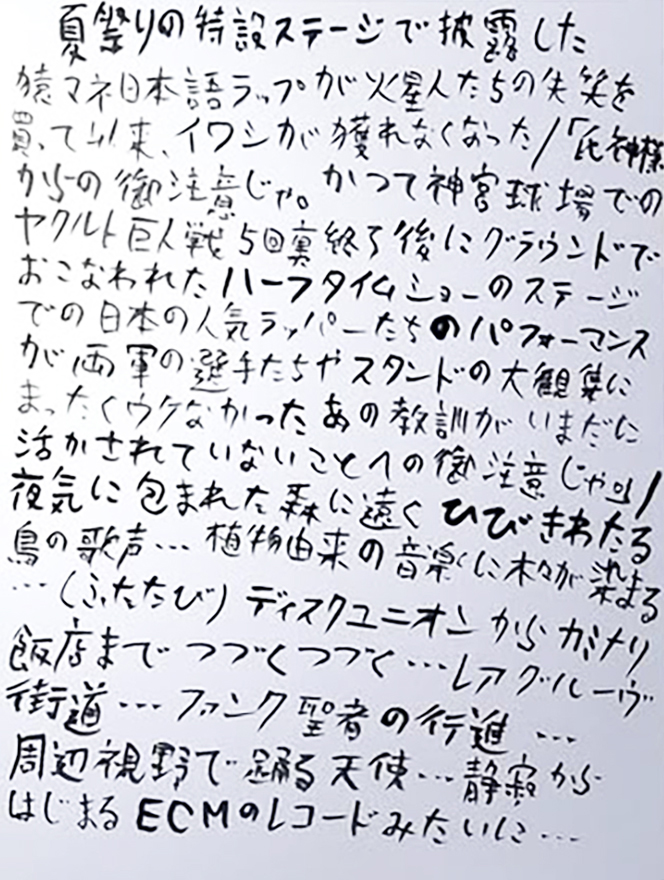 夏祭りの特設ステージで披露した
猿マネ日本語ラップが火星人たちの失笑を
買って以来、イワシが獲れなくなった/「氏神様
からの御注意じゃ。かつて神宮球場での
ヤクルト巨人戦5回裏終了後にグラウンドで
おこなわれたハーフタイムショーのステージ
での日本の人気ラッパーたちのパフォーマンス
が両軍の選手たちやスタンドの大観集に
まったくウケなかったあの教訓がいまだに
活かされていないことへの御注意じゃ」/
夜気に包まれた森に遠くひびきわたる
鳥の歌声…植物由来の音楽に木々が染まる
…(ふたたび)ディスクユニオンからカミナリ
飯店までつづくつづく…レアグルーヴ
街道…ファンク聖者の行進…
周辺視野で踊る天使…静寂から
はじまるECMのレコードみたいに…